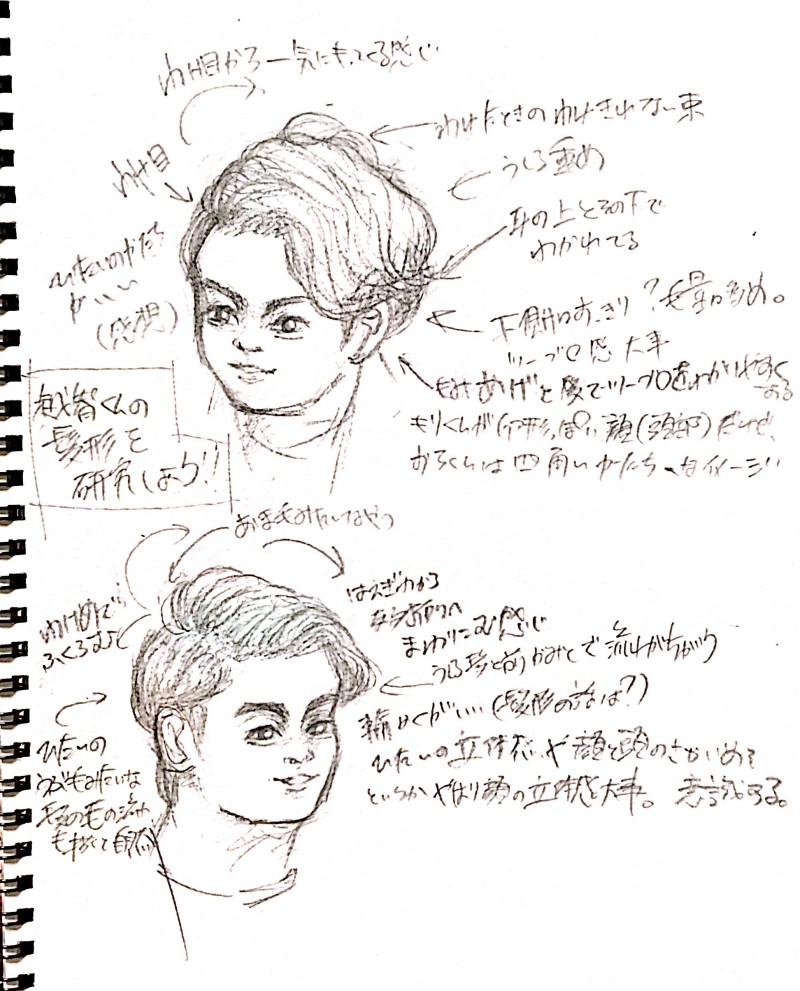 わけ目から一気にもってくる感じ
わけたときのわけきれない束
うしろ重め
わけ目
耳の上とその下で
わかれてる
ひたいのかたち
がいい
(感想)
下側はすっきり?毛量多め。
ツーブロ感 大事
もみあげと後でツーブロをわかりやすくする
もりくんが卵形っぽい顔(頭部)だけど、
おちくんは四角いかたちなイメージ
越智くんの
髪形を
研究しよう!!
みたいなやつ
わけめで
ふくらむ
はえぎわから
ななめ前へ
まわりこむ感じ
うしろ髪と前がみとで流れがちがう
輪かくがいい(髪形の話は?)
ひたいの
うぶ毛みたいな
髪の毛の流れ
も描くと自然
ひたいの立体感や顔と頭のさかいめ?
というかやはり顔の立体感も大事。意識する。